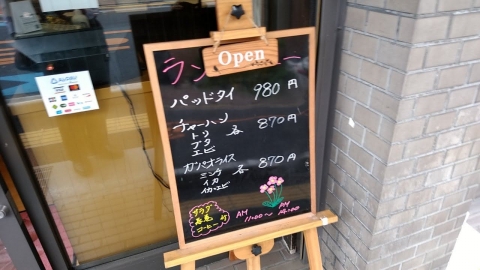 Open
パッドタイ 980円
チャーハン
トリ
ブタ 各 870円
エビ
ガパオライス
ミンチ 各 870円
イカ
イカ・エビ
サラダ
春巻
コーヒー付
AM PM
11:00〜14:00